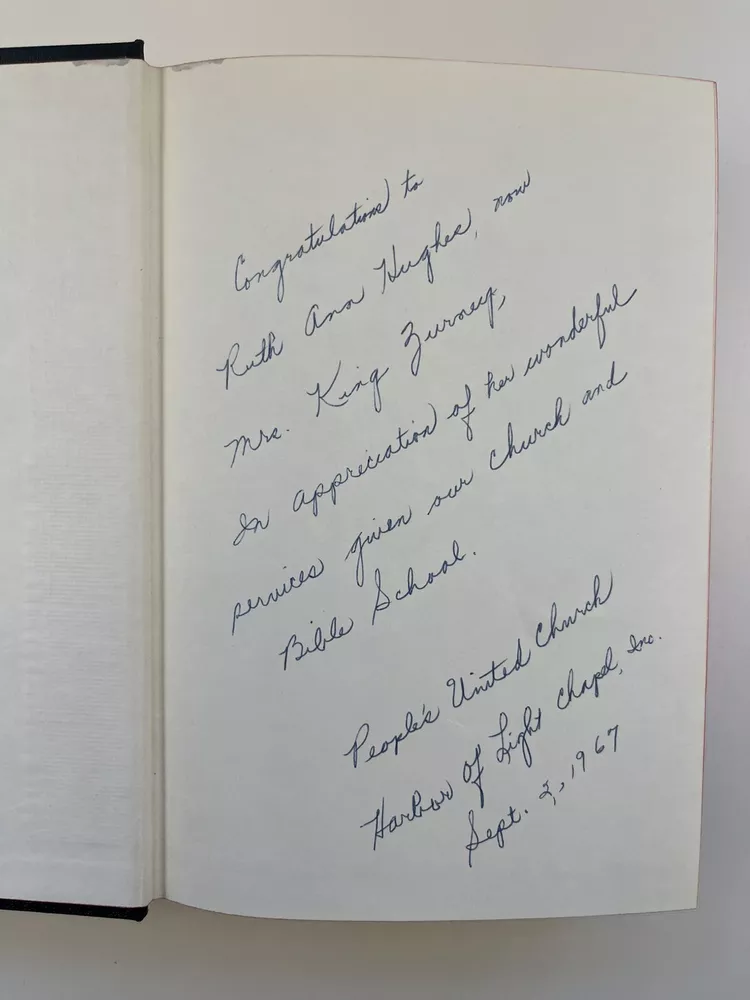 Congratulations to
Ruth Ann Hughes, now
Mrs. King Zurney,
In appreciation of her wonderful
services given our church and
Bible School.
People's United Church
Harbor of Light Chapel, Inc.
Sept. 2, 1967